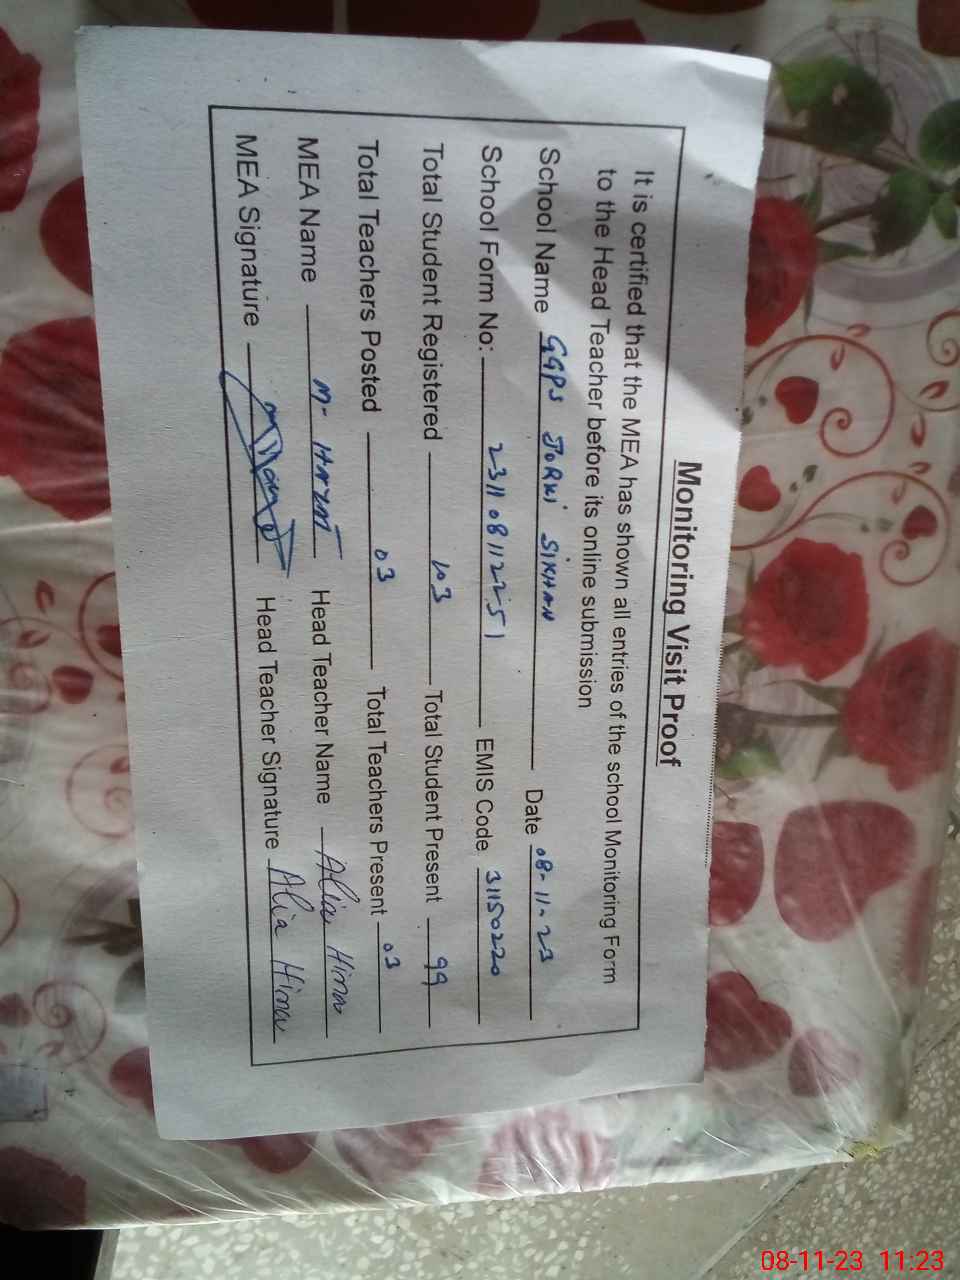 Monitoring Visit Proof
It is certified that the MEA has shown all entries of the school Monitoring Form
to the Head Teacher before its online submission
School Name GGPS JORKi SiKHAN Date 08-11-23
School Form No: 231108112251 EMIS Code 31150220
Total Student Registered 103 Total Student Present 99
Total Teachers Posted 03 Total Teachers Present 03
MEA Name M- HAYAT Head Teacher Name Alia Hina
MEA Signature Head Teacher Signature Alia Hina
08-11-23 11:23